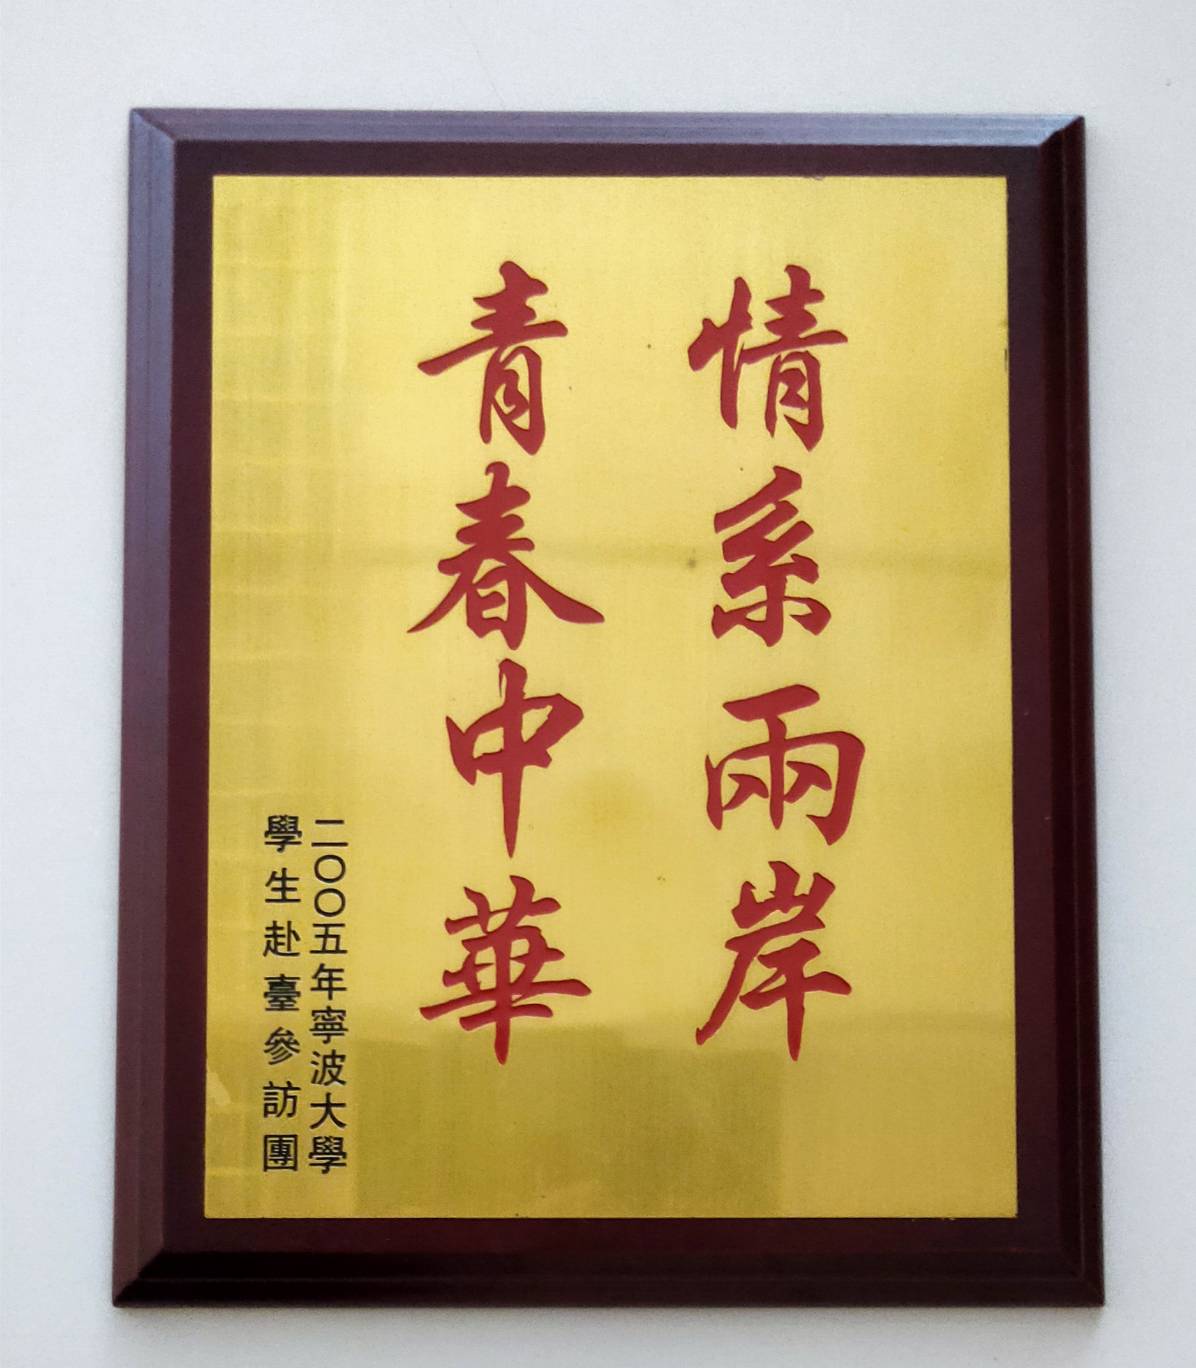 情系兩岸
青春中華
二〇〇五年寧波大學
學生赴臺參訪團